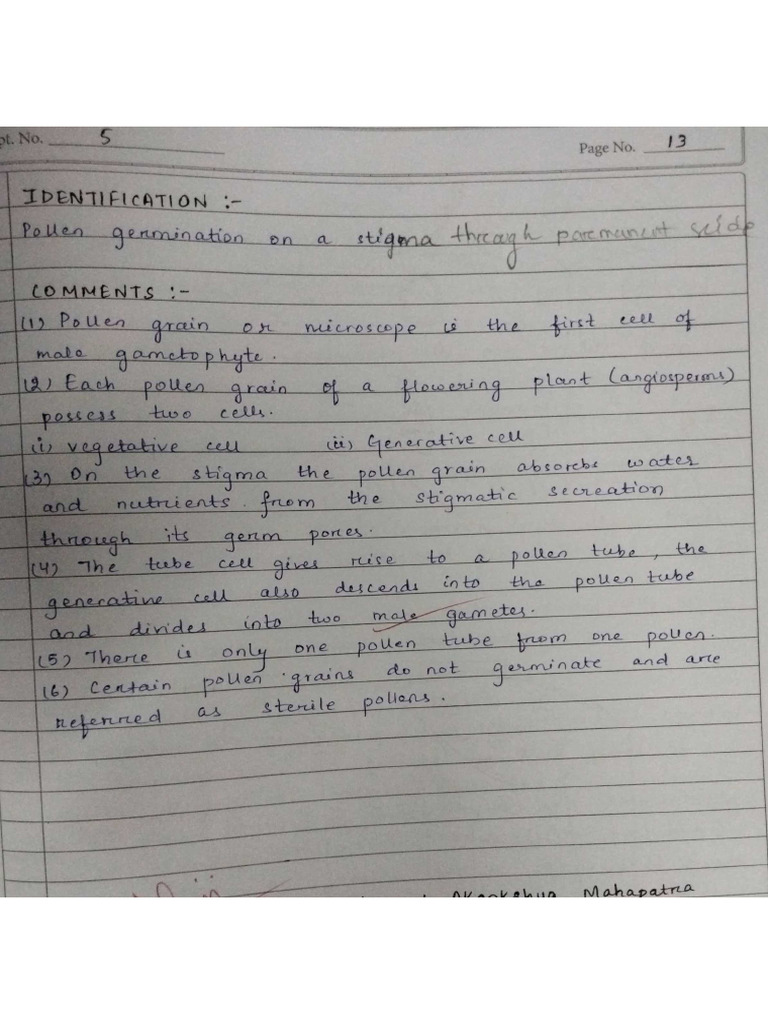 pt. No. 5
Page No. 13
IDENTIFICATION :-
Pollen germination on a stigma through paremanent
COMMENTS :-
(1) Pollen grain or microscope is the first cell of
male gametophyte.
(2) Each pollen grain of a flowering plant (angiosperms)
possess two cells.
(i) vegetative cell (ii) Generative cell
(3) On the stigma the pollen grain absorbs water
and nutrients from the stigmatic secreation
through its germ pores.
(4) The tube cell gives rise to a pollen tube, the
generative cell also descends into the pollen tube
and divides into two male gametes.
(5) There is only one pollen tube from one pollen.
(6) Certain pollen grains do not germinate and are
referred as sterile pollens.
Mahapatra